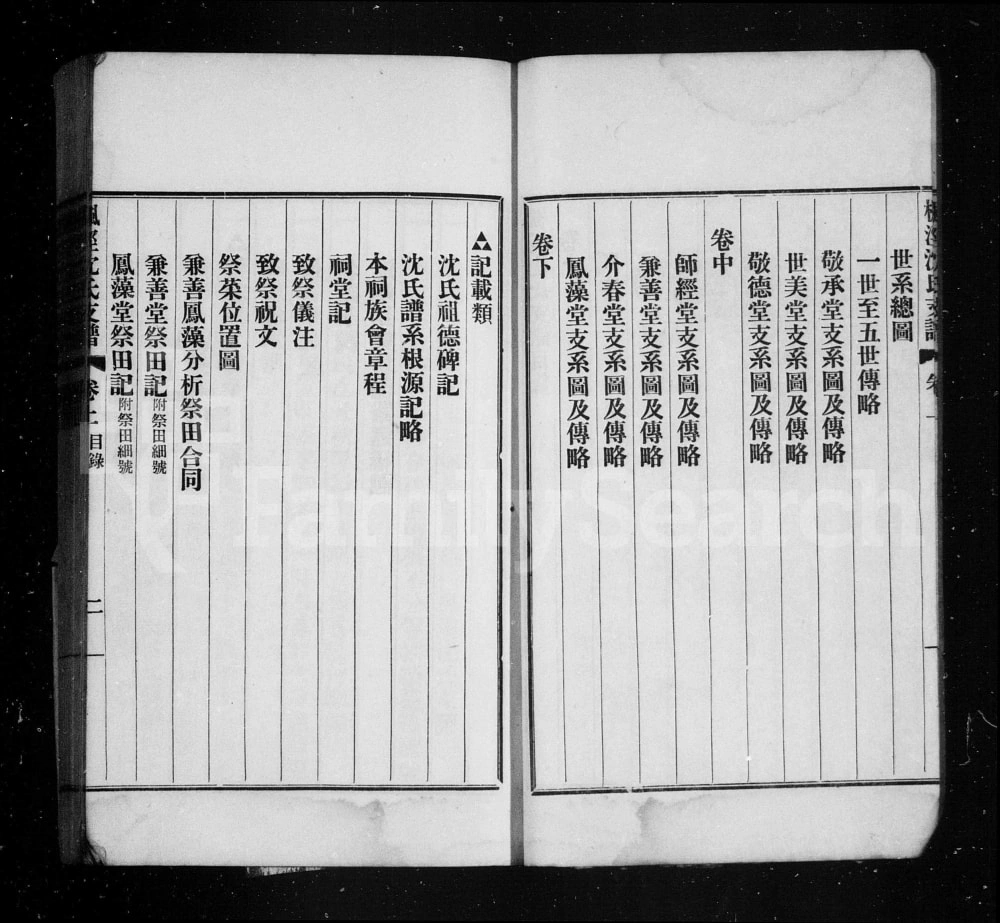 楓涇沈氏支譜
世系總圖
一世至五世傳略
敬承堂支系圖及傳略
世美堂支系圖及傳略
敬德堂支系圖及傳略
卷中
師經堂支系圖及傳略
兼善堂支系圖及傳略
介春堂支系圖及傳略
鳳藻堂支系圖及傳略
卷下
記載類
沈氏祖德碑記
沈氏譜系根源記略
本祠族會章程
祠堂記
致祭儀注
致祭祝文
祭菜位置圖
兼善鳳藻分析祭田合同
兼善堂祭田記附祭田細號
鳳藻堂祭田記附祭田細號
楓涇沈氏支譜 目錄 二
FamilySearch